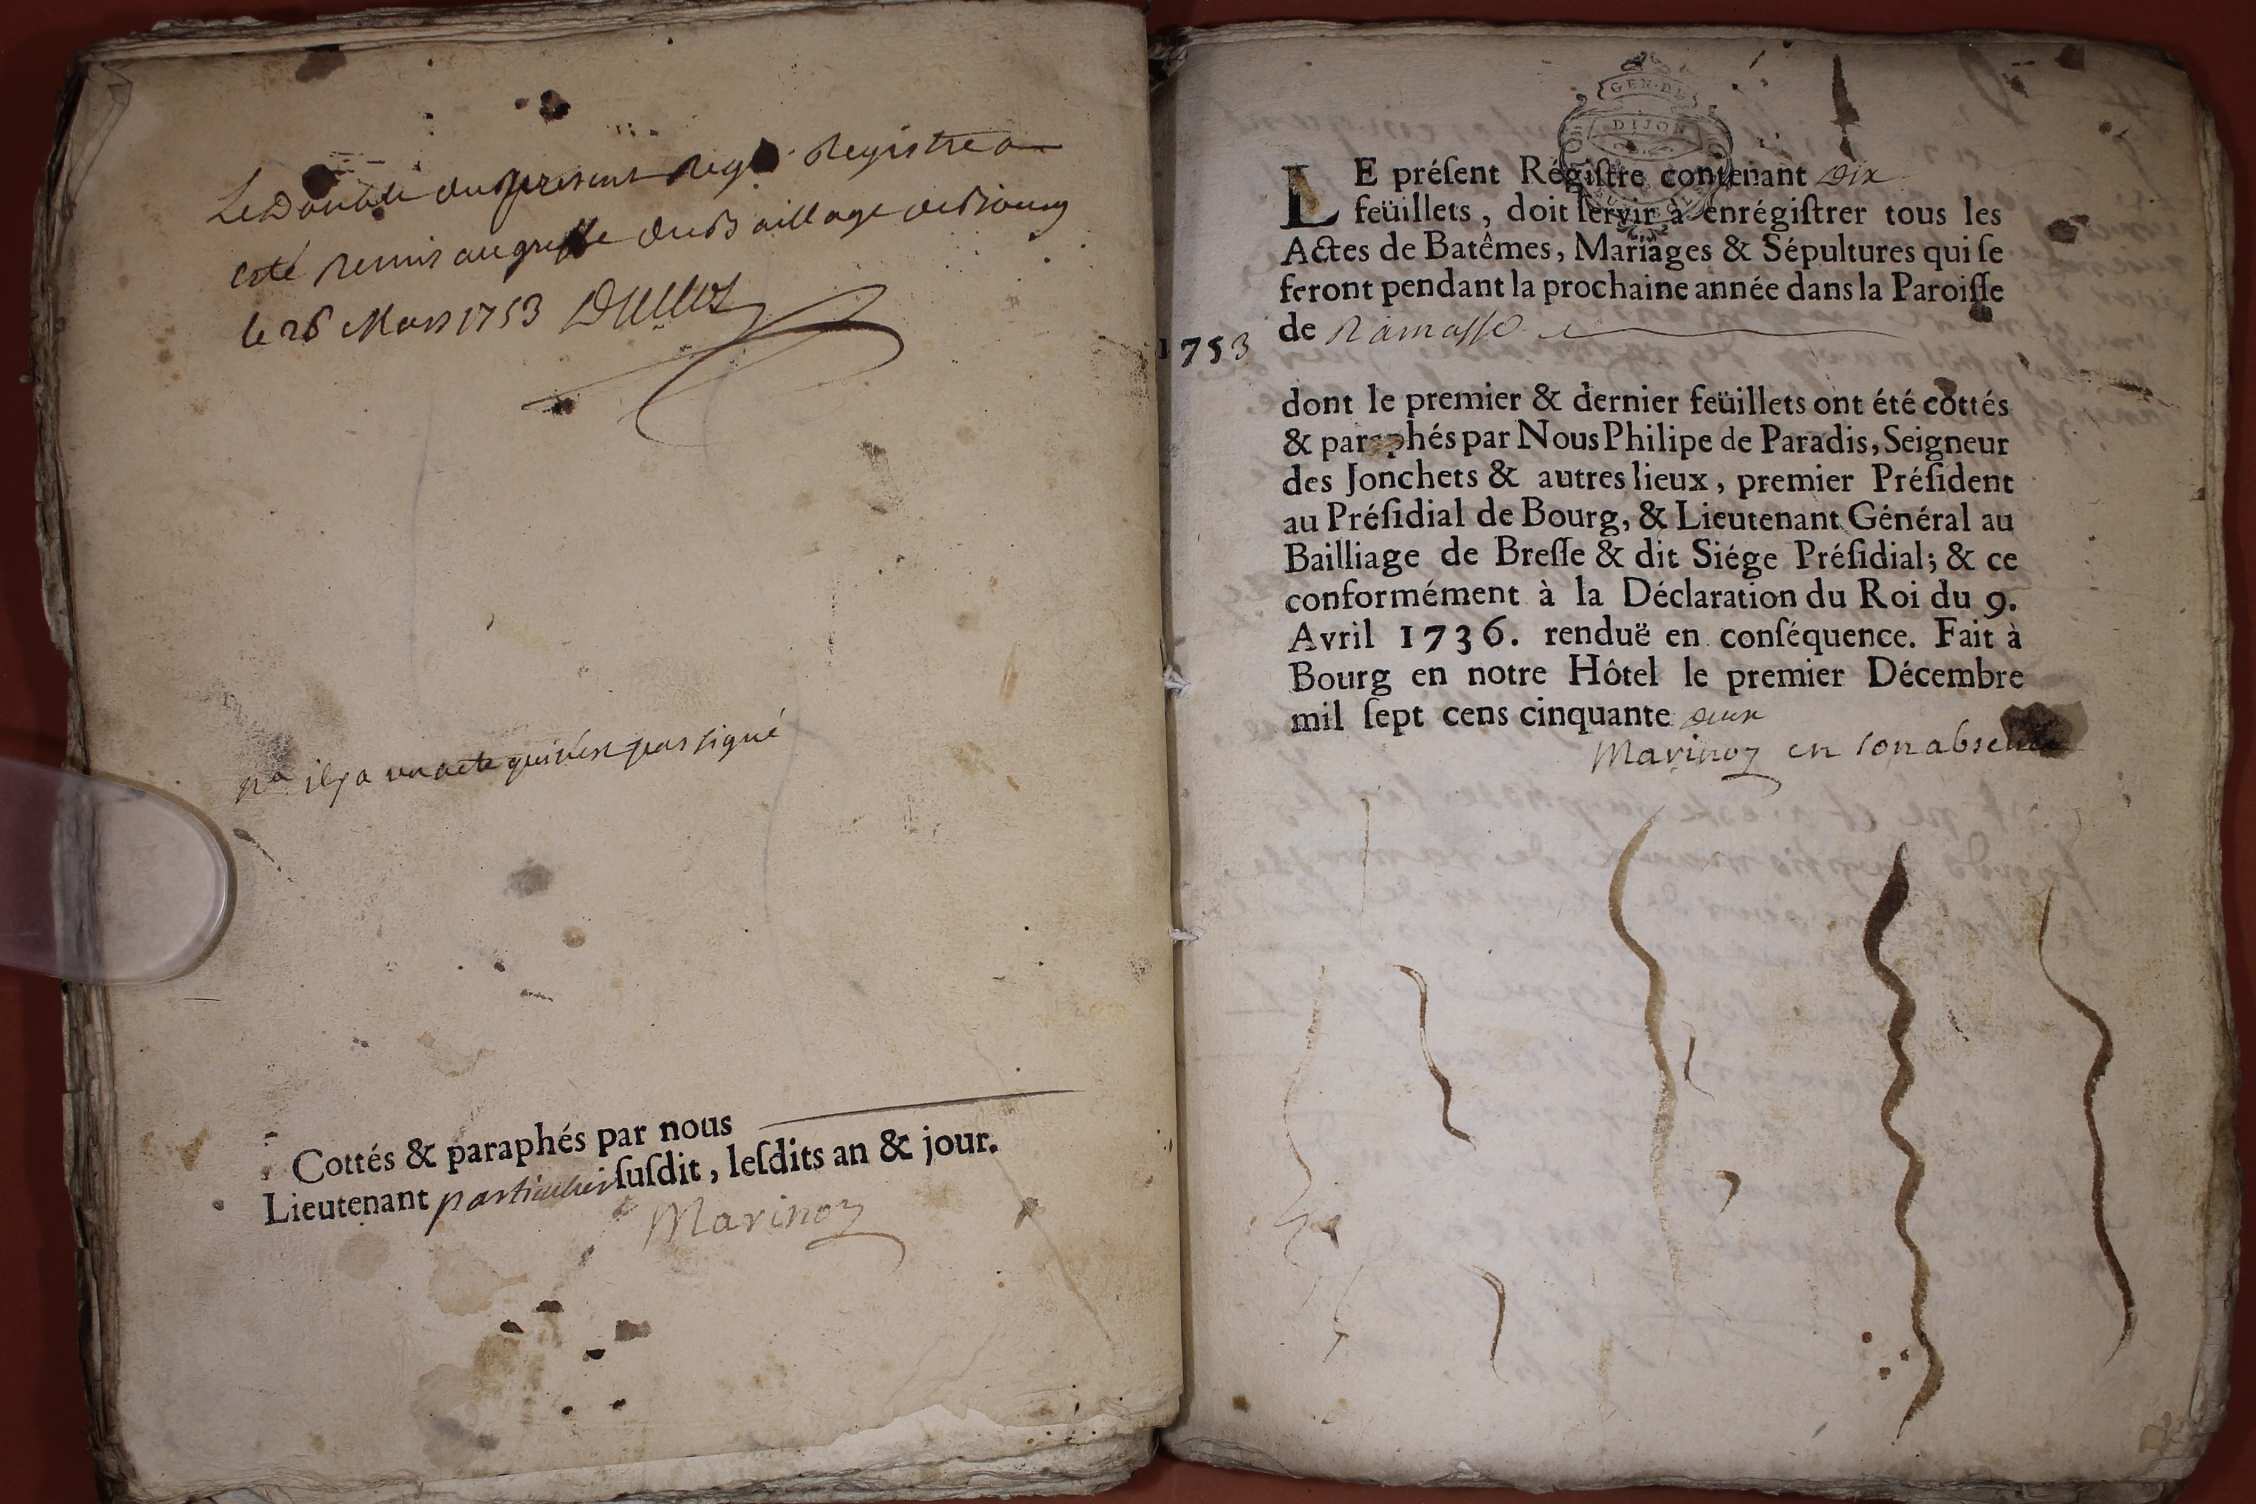 Le Double du present Reg. Registre a
esté Remis au greffe du Bailliage de Bourg
le 26 Mars 1753
na il y a un acte qui n'est pas signé
Cottés & paraphés par nous
Lieutenant particulier ſuſdit, leſdits an & jour.
Marinoz
GEN. DE
DIJON
LE préſent Régiſtre contenant Dix
feüillets, doit ſervir à enrégiſtrer tous les
Actes de Batêmes, Mariages & Sépultures qui ſe
feront pendant la prochaine année dans la Paroiſſe
de Ramasse
1753
dont le premier & dernier feüillets ont été cottés
& paraphés par Nous Philipe de Paradis, Seigneur
des Jonchets & autres lieux, premier Préſident
au Préſidial de Bourg, & Lieutenant Général au
Bailliage de Breſſe & dit Siége Préſidial; & ce
conformément à la Déclaration du Roi du 9.
Avril 1736. renduë en conſéquence. Fait à
Bourg en notre Hôtel le premier Décembre
mil ſept cens cinquante deux
Marinoz en son absence